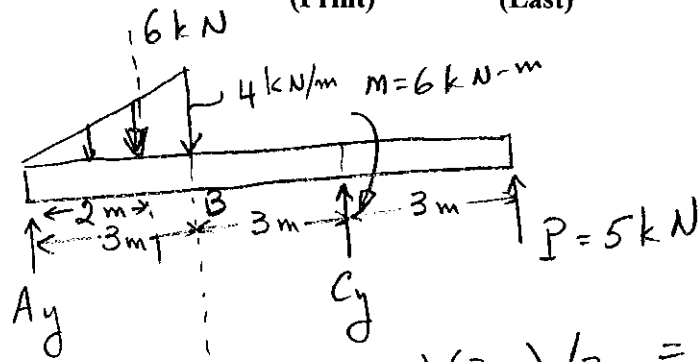 (Print) (Last)
6 kN
4 kN/m m=6 kN-m
2 m B
3m 3m 3m
P = 5 kN
Ay Cy
)(3 )/2 =